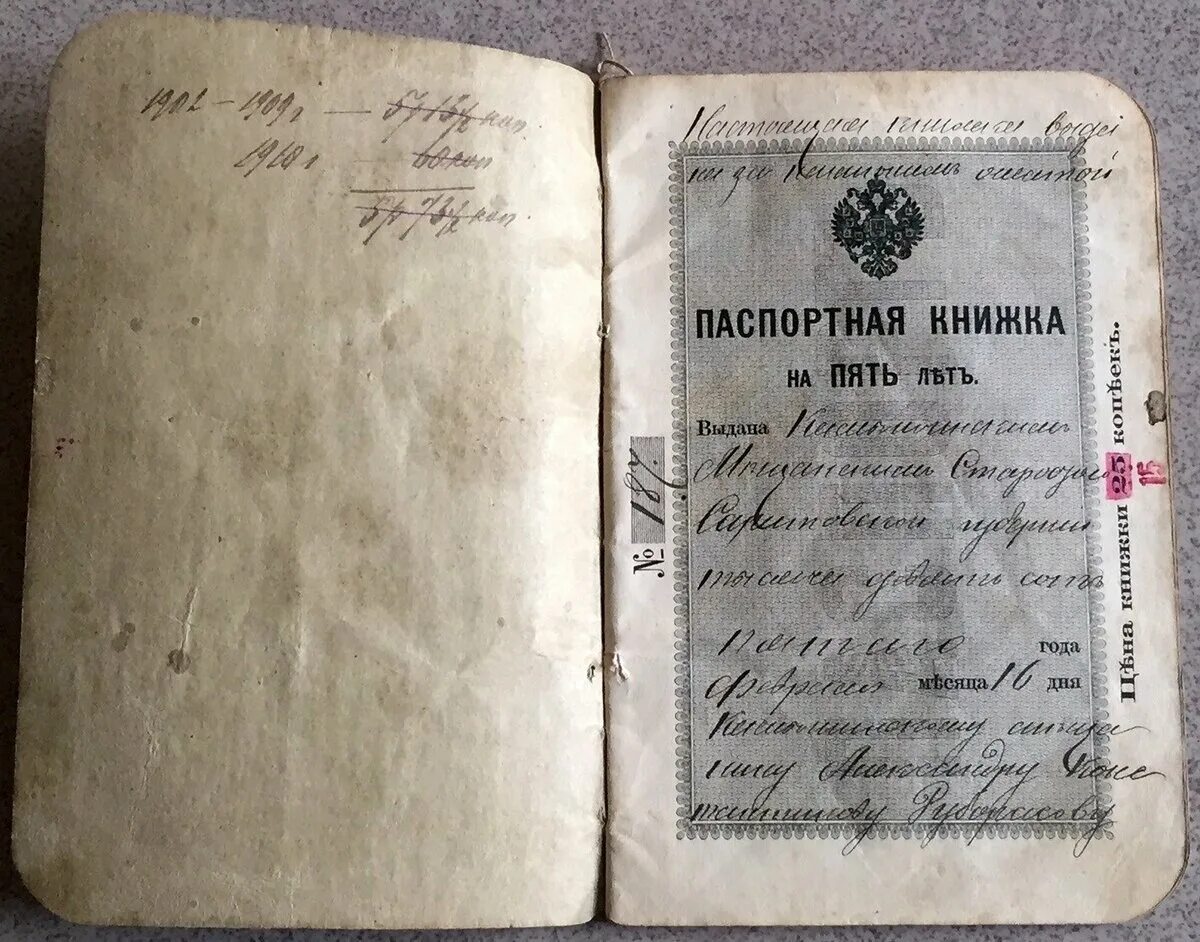 1902 – 1909 г. — 57 13½ коп.
1910 г. 60 коп
коп.
Настоящая книжка выда
на за
ПАСПОРТНАЯ КНИЖКА
НА ПЯТЬ ЛѢТЪ.
Выдана Камышинскимъ
Мѣщанскимъ Старостою
Саратовской губернiи
тысяча девять сотъ
пятаго года
февраля мѣсяца 16 дня
Камышинскому мѣща
нину Александру Конс
тантинову
№ 187.
Цѣна книжки 25 копѣекъ.
15